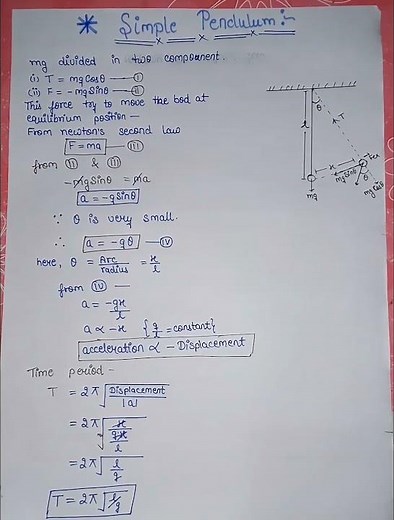 * Simple Pendulum:-
mg divided in two component.
(i) T = mgCosθ — (I)
(ii) F = -mgSinθ — (II)
This force try to move the bod at
equilibrium position —
From newton's second law
F = ma — (III)
from (II) & (III)
-mgSinθ = ma
a = -gSinθ
∵ θ is very small.
∴ a = -gθ — (IV)
here, θ = Arc/radius = x/l
from (IV) —
a = -gx/l
a ∝ -x { g/l = constant}
acceleration ∝ - Displacement
Time period -
T = 2π √(Displacement/|a|)
= 2π √(x/(gx/l))
= 2π √(l/g)
T = 2π √(l/g)
θ
T
l
x
mgSinθ
θ
mgCosθ
mg